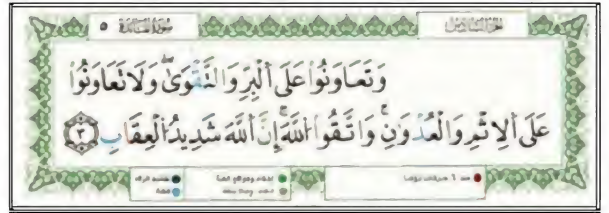 سورة المائدة ٥
وَتَعَاوَنُوا۟ عَلَى ٱلْبِرِّ وَٱلتَّقْوَىٰ ۖ وَلَا تَعَاوَنُوا۟
عَلَى ٱلْإِثْمِ وَٱلْعُدْوَٰنِ ۚ وَٱتَّقُوا۟ ٱللَّهَ ۖ إِنَّ ٱللَّهَ شَدِيدُ ٱلْعِقَابِ ٣